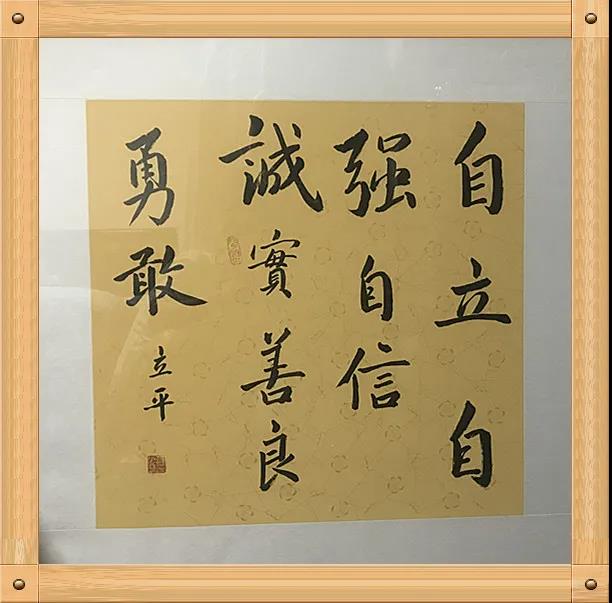 自立自
强自信
誠實善良
勇敢
立平